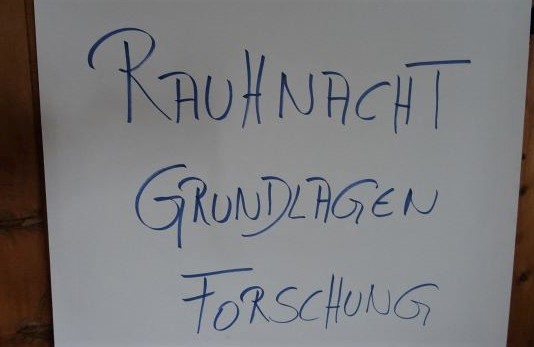 RAUHNACHT
GRUNDLAGEN
FORSCHUNG